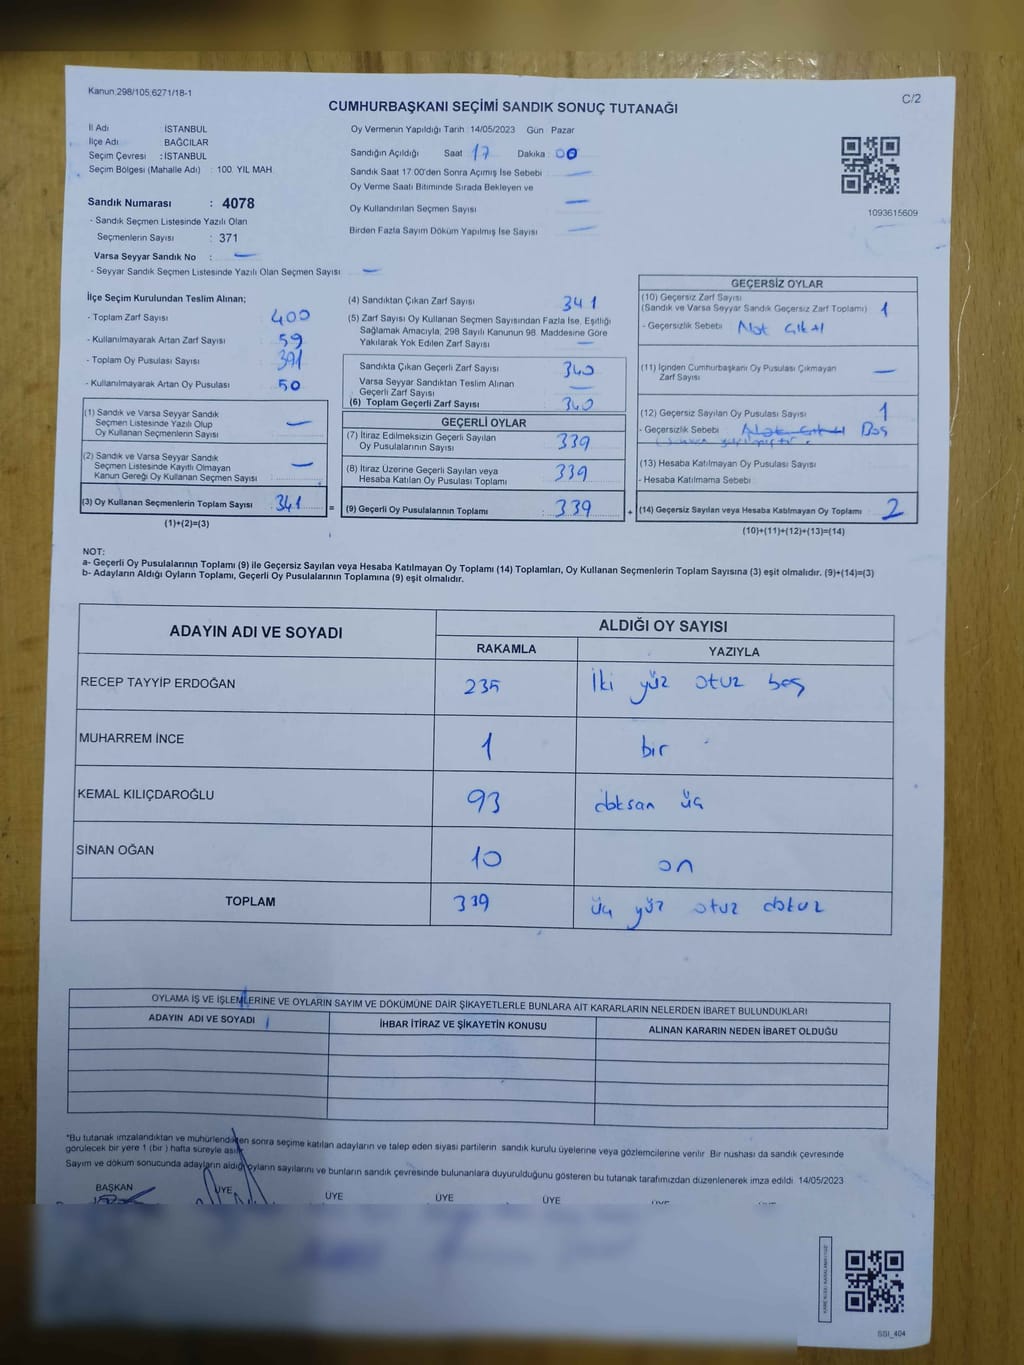 Kanun.298/105,6271/18-1
C/2
CUMHURBAŞKANI SEÇİMİ SANDIK SONUÇ TUTANAĞI
İl Adı : İSTANBUL
İlçe Adı : BAĞCILAR
Seçim Çevresi : İSTANBUL
Seçim Bölgesi (Mahalle Adı) : 100. YIL MAH.
Oy Vermenin Yapıldığı Tarih : 14/05/2023 Gün Pazar
Sandığın Açıldığı Saat 17 Dakika : 00
Sandık Saat 17.00'den Sonra Açımış İse Sebebi : —
Oy Verme Saati Bitiminde Sırada Bekleyen ve
Oy Kullandırılan Seçmen Sayısı —
Birden Fazla Sayım Döküm Yapılmış İse Sayısı —
1093615609
Sandık Numarası : 4078
- Sandık Seçmen Listesinde Yazılı Olan
Seçmenlerin Sayısı : 371
Varsa Seyyar Sandık No : —
- Seyyar Sandık Seçmen Listesinde Yazılı Olan Seçmen Sayısı —
İlçe Seçim Kurulundan Teslim Alınan;
- Toplam Zarf Sayısı : 400
- Kullanılmayarak Artan Zarf Sayısı : 59
- Toplam Oy Pusulası Sayısı : 391
- Kullanılmayarak Artan Oy Pusulası : 50
(1) Sandık ve Varsa Seyyar Sandık
Seçmen Listesinde Yazılı Olup
Oy Kullanan Seçmenlerin Sayısı —
(2) Sandık ve Varsa Seyyar Sandık
Seçmen Listesinde Kayıtlı Olmayan
Kanun Gereği Oy Kullanan Seçmen Sayısı —
(3) Oy Kullanan Seçmenlerin Toplam Sayısı : 341
(1)+(2)=(3)
(4) Sandıktan Çıkan Zarf Sayısı 341
(5) Zarf Sayısı Oy Kullanan Seçmen Sayısından Fazla İse, Eşitliği
Sağlamak Amacıyla, 298 Sayılı Kanunun 98. Maddesine Göre
Yakılarak Yok Edilen Zarf Sayısı —
Sandıkta Çıkan Geçerli Zarf Sayısı : 340
Varsa Seyyar Sandıktan Teslim Alınan
Geçerli Zarf Sayısı —
(6) Toplam Geçerli Zarf Sayısı : 340
GEÇERLİ OYLAR
(7) İtiraz Edilmeksizin Geçerli Sayılan
Oy Pusulasının Sayısı : 339
(8) İtiraz Üzerine Geçerli Sayılan veya
Hesaba Katılan Oy Pusulası Toplamı : 339
= (9) Geçerli Oy Pusulalarının Toplamı : 339
GEÇERSİZ OYLAR
(10) Geçersiz Zarf Sayısı
(Sandık ve Varsa Seyyar Sandık Geçersiz Zarf Toplamı) : 1
- Geçersizlik Sebebi : Not çıktı
(11) İçinden Cumhurbaşkanı Oy Pusulası Çıkmayan
Zarf Sayısı —
(12) Geçersiz Sayılan Oy Pusulası Sayısı : 1
- Geçersizlik Sebebi : Boş
(13) Hesaba Katılmayan Oy Pusulası Sayısı
- Hesaba Katılmama Sebebi :
+ (14) Geçersiz Sayılan veya Hesaba Katılmayan Oy Toplamı : 2
(10)+(11)+(12)+(13)=(14)
NOT:
a- Geçerli Oy Pusulalarının Toplamı (9) ile Geçersiz Sayılan veya Hesaba Katılmayan Oy Toplamı (14) Toplamları, Oy Kullanan Seçmenlerin Toplam Sayısına (3) eşit olmalıdır. (9)+(14)=(3)
b- Adayların Aldığı Oyların Toplamı, Geçerli Oy Pusulalarının Toplamına (9) eşit olmalıdır.
ADAYIN ADI VE SOYADI ALDIĞI OY SAYISI
RAKAMLA YAZIYLA
RECEP TAYYİP ERDOĞAN 235 İki yüz otuz beş
MUHARREM İNCE 1 bir
KEMAL KILIÇDAROĞLU 93 doksan üç
SİNAN OĞAN 10 on
TOPLAM 339 üç yüz otuz dokuz
OYLAMA İŞ VE İŞLEMLERİNE VE OYLARIN SAYIM VE DÖKÜMÜNE DAİR ŞİKAYETLERLE BUNLARA AİT KARARLARIN NELERDEN İBARET BULUNDUKLARI
ADAYIN ADI VE SOYADI İHBAR İTİRAZ VE ŞİKAYETİN KONUSU ALINAN KARARIN NEDEN İBARET OLDUĞU
*Bu tutanak imzalandıktan ve mühürlendikten sonra seçime katılan adayların ve talep eden siyasi partilerin sandık kurulu üyelerine veya gözlemcilerine verilir. Bir nüshası da sandık çevresinde
görülecek bir yere 1 (bir) hafta süreyle asılır.
Sayım ve döküm sonucunda adayların aldığı oyların sayılarını ve bunların sandık çevresinde bulunanlara duyurulduğunu gösteren bu tutanak tarafımızdan düzenlenerek imza edildi. 14/05/2023
BAŞKAN ÜYE ÜYE ÜYE ÜYE
SSI_404